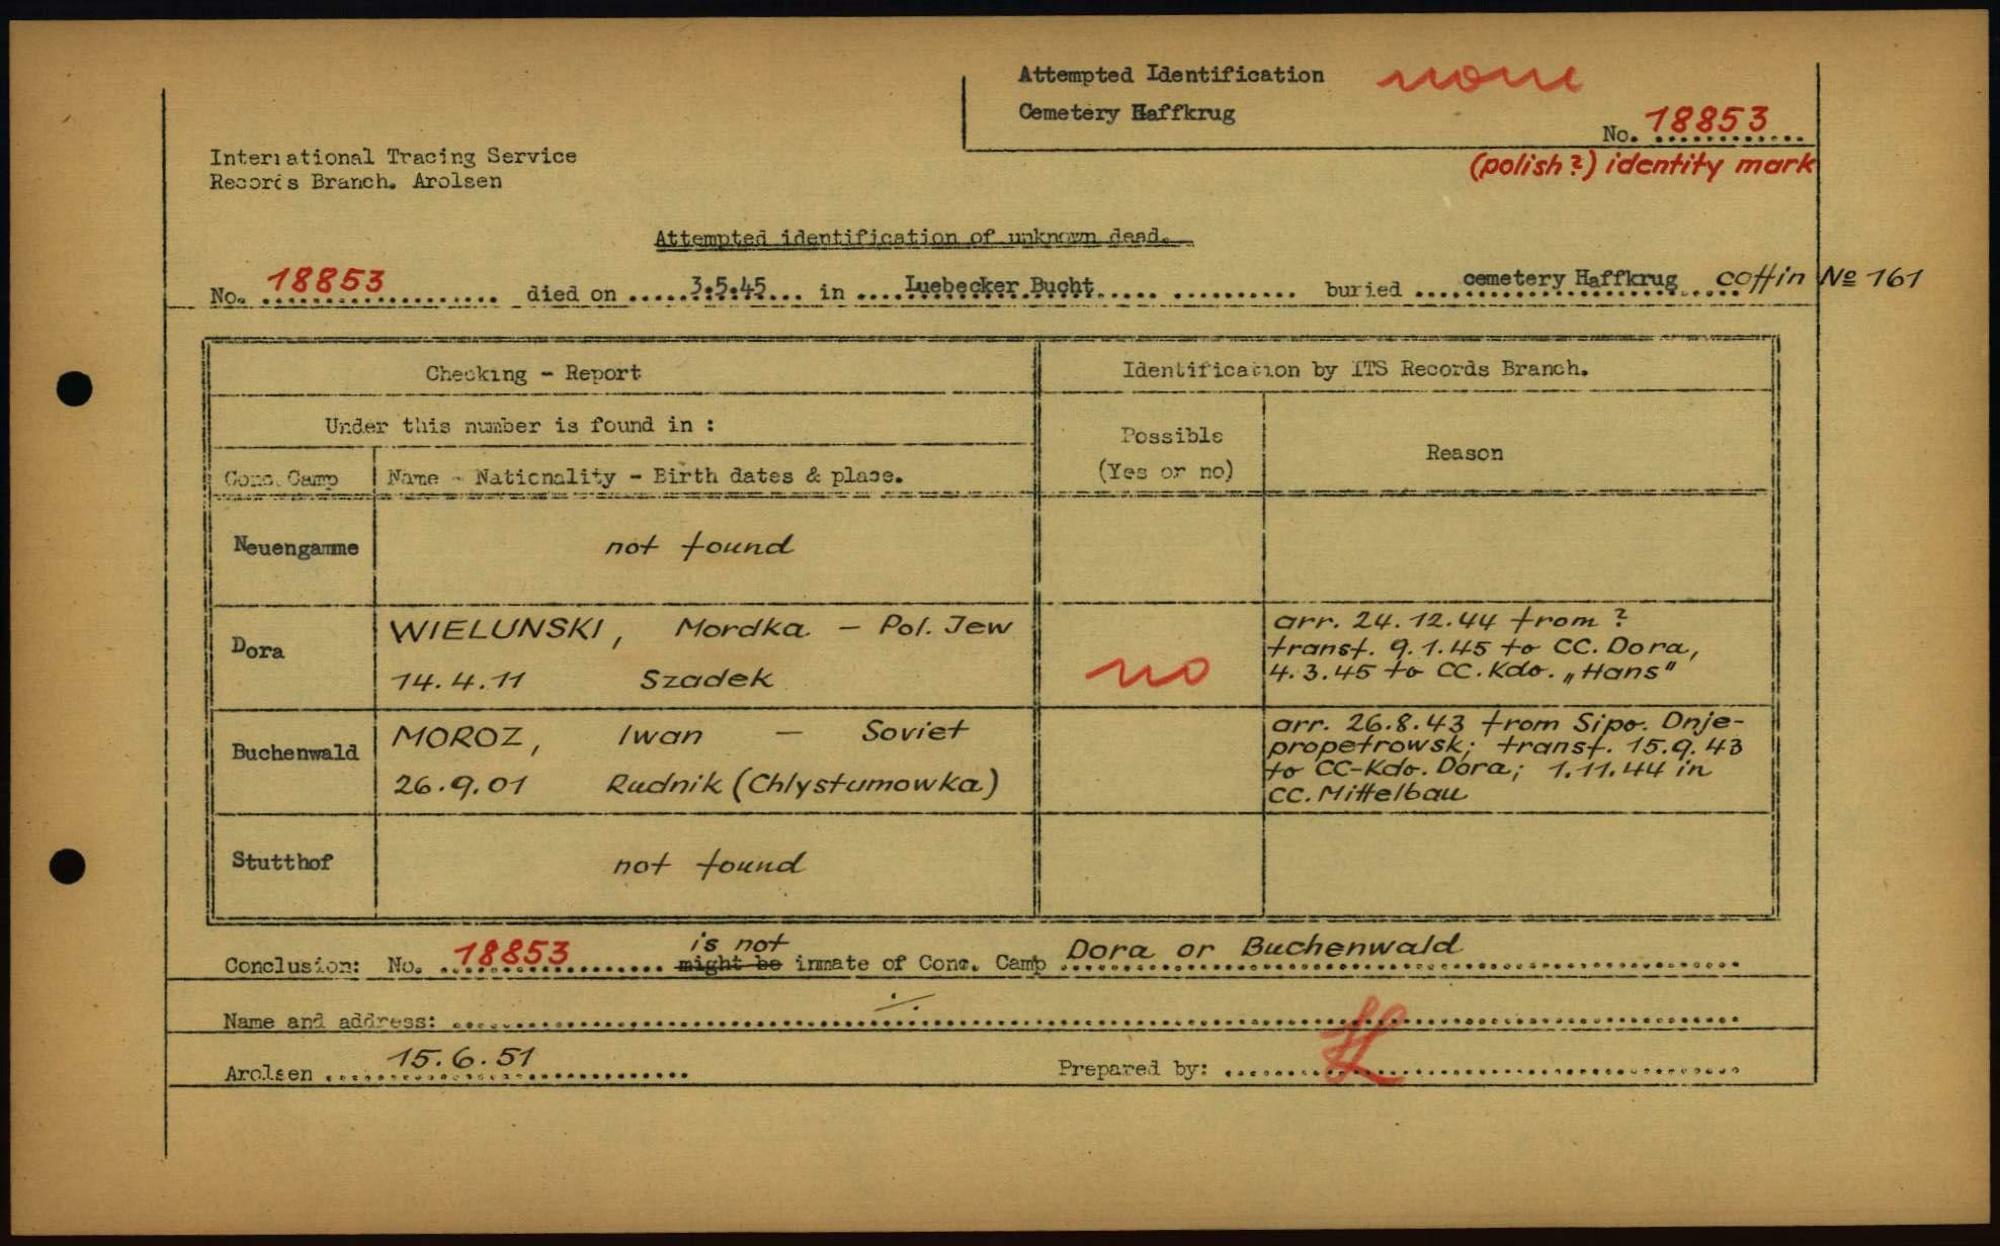 Attempted Identification none
Cemetery Haffkrug
No. 18853
(polish?) identity mark
International Tracing Service
Records Branch. Arolsen
Attempted identification of unknown dead.
No. 18853 died on 3.5.45 in Luebecker Bucht buried cemetery Haffkrug coffin № 161
Checking - Report
Identification by ITS Records Branch.
Under this number is found in :
Possible
(Yes or no)
Reason
Conc. Camp
Name - Nationality - Birth dates & place.
Neuengamme
not found
Dora
WIELUNSKI, Mordka - Pol. Jew
14.4.11 Szadek
no
arr. 24.12.44 from ?
transf. 9.1.45 to CC. Dora,
4.3.45 to CC. Kdo. „Hans"
Buchenwald
MOROZ, Iwan - Soviet
26.9.01 Rudnik (Chlystumowka)
arr. 26.8.43 from Sipo. Dnje-
propetrowsk; transf. 15.9.43
to CC-Kdo. Dora; 1.11.44 in
CC. Mittelbau
Stutthof
not found
is not
Conclusion: No. 18853 might be inmate of Conc. Camp Dora or Buchenwald
Name and address: ./.
Arolsen 15.6.51
Prepared by: